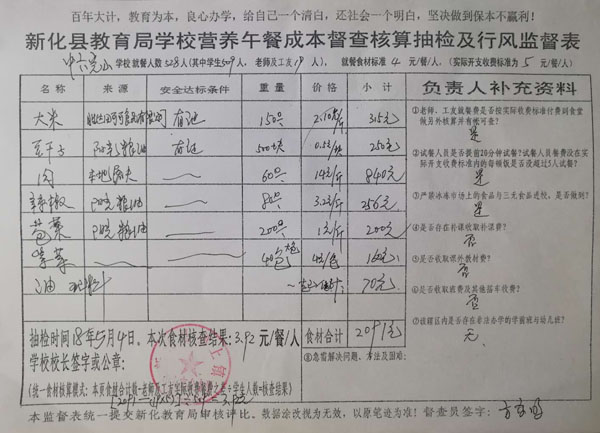 百年大计，教育为本，良心办学，给自己一个清白，还社会一个明白，坚决做到保本不赢利！
新化县教育局学校营养午餐成本督查核算抽检及行风监督表
学校 就餐人数528人(其中学生509人，老师及工友19人)， 就餐食材标准 4 元/餐/人，(实际开支收费标准为 5 元/餐/人)
名称 来源 安全达标条件 重量 价格 小计 负责人补充资料
大米 有证 150斤 2.10元/斤 315元
豆干子 阳光粮油 有证 500块 0.5元/块 250元
肉 本地屠夫 60斤 14元/斤 840元
辣椒 阳光粮油 80斤 3.2元/斤 256元
包菜 阳光粮油 200斤 1元/斤 200元
榨菜 40包 4元/包 160元
油 70元
①老师、工友就餐费是否按实际收费标准付费到食堂
做另外核算并有帐可查？
是
②试餐人员是否提前20分钟试餐？试餐人员餐费没在实
际开支收费标准内的每顿饭是否没超过5人试餐？
是
③严禁冰冻市场上的食品与三无食品进校，是否做到？
是
④是否存在补课收取补课费？
否
⑤是否收取课外教材费？
否
⑥是否收取班费及其他搭车收费？
否
⑦该辖区内是否存在非法办学的学前班与幼儿班？
无
抽检时间18年5月4日。本次食材核查结果：3.92元/餐/人 食材合计 2091元
学校校长签字或公章：
⑧急需解决问题、方法及困难：
(统一食材核算模式：本页食材合计数-老师及工友实际收费餐费之差÷学生人数=核查结果)
本监督表统一提交新化教育局审核评比。数据涂改视为无效，以原笔迹为准！督查员签字：